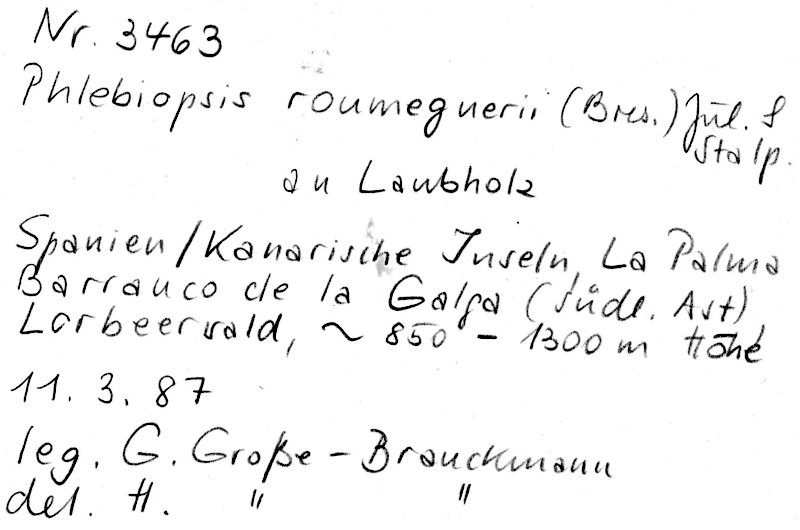 Nr. 3463
Phlebiopsis roumeguerii (Bres.) Jül. &
Stalp.
an Laubholz
Spanien/Kanarische Inseln, La Palma
Barranco de la Galga (südl. Ast),
Lorbeerwald, ~ 850 - 1300 m Höhe
11. 3. 87
leg. G. Große-Brauckmann
det. H. " "